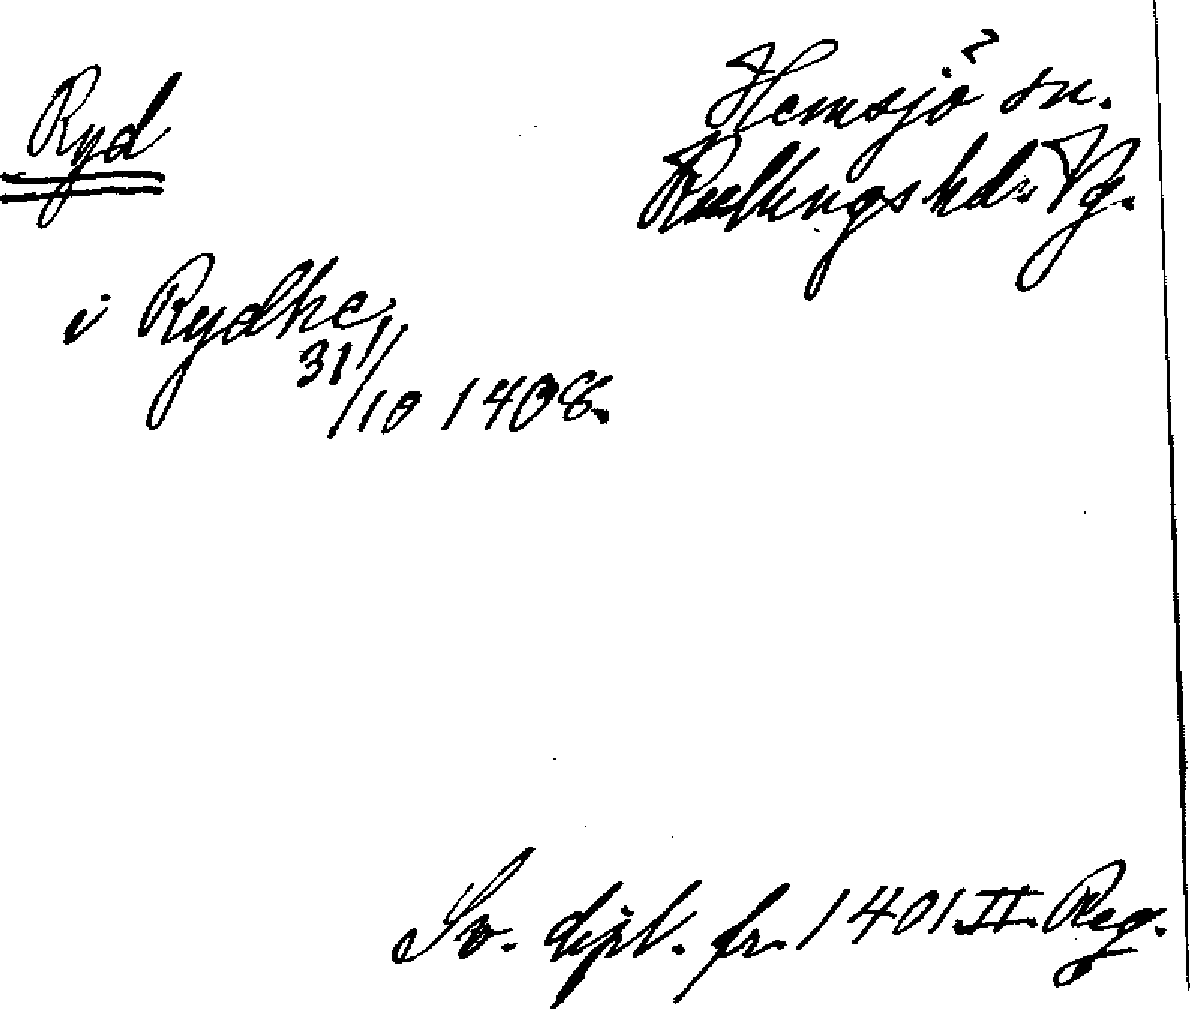 Ryd
Hemsjö ? sn.
Kullings hd. Vg.
i Rydhe
31/10 1408.
Sv. dipl. fr. 1401. II. Reg.